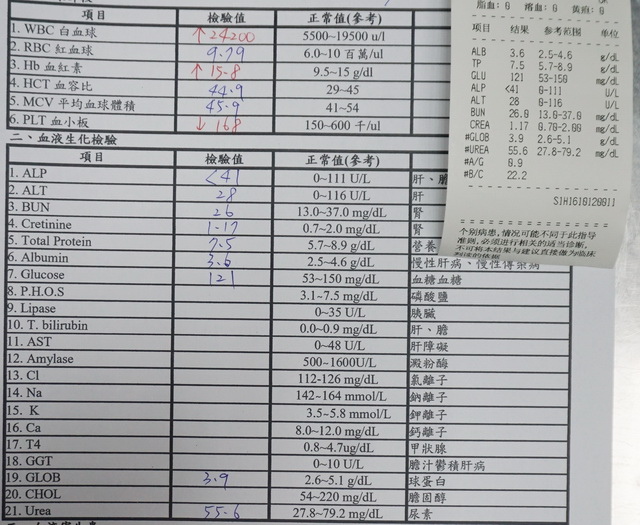 項目 檢驗值 正常值(參考)
1. WBC 白血球 ↑24200 5500~19500 u/l
2. RBC 紅血球 9.79 6.0~10 百萬/ul
3. Hb 血紅素 ↑15.8 9.5~15 g/dl
4. HCT 血容比 44.9 29~45
5. MCV 平均血球體積 45.9 41~54
6. PLT 血小板 ↓168 150~600 千/ul
二、血液生化檢驗
項目 檢驗值 正常值(參考)
1. ALP <41 0~111 U/L 肝、膽
2. ALT 28 0~116 U/L 肝
3. BUN 26 13.0~37.0 mg/dL 腎
4. Cretinine 1.17 0.7~2.0 mg/dL 腎
5. Total Protein 7.5 5.7~8.9 g/dL 營養
6. Albumin 3.6 2.5~4.6 g/dL 慢性肝病、慢性傳染病
7. Glucose 121 53~150 mg/dL 血糖血糖
8. P.H.O.S 3.1~7.5 mg/dL 磷酸鹽
9. Lipase 0~35 U/L 胰臟
10. T. bilirubin 0.0~0.9 mg/dL 肝、膽
11. AST 0~48 U/L 肝障礙
12. Amylase 500~1600U/L 澱粉酶
13. Cl 112-126 mg/dL 氯離子
14. Na 142~164 mmol/L 鈉離子
15. K 3.5~5.8 mmol/L 鉀離子
16. Ca 8.0~12.0 mg/dL 鈣離子
17. T4 0.8~4.7ug/dL 甲狀腺
18. GGT 0~10 U/L 膽汁鬱積肝病
19. GLOB 3.9 2.6~5.1 g/dL 球蛋白
20. CHOL 54~220 mg/dL 膽固醇
21. Urea 55.6 27.8~79.2 mg/dL 尿素
脂血: 0 溶血: 0 黃疸: 0
项目 结果 参考范围 单位
ALB 3.6 2.5-4.6 g/dL
TP 7.5 5.7-8.9 g/dL
GLU 121 53-150 mg/dL
ALP <41 0-111 U/L
ALT 28 0-116 U/L
BUN 26.0 13.0-37.0 mg/dL
CREA 1.17 0.70-2.00 mg/dL
#GLOB 3.9 2.6-5.1 g/dL
#UREA 55.6 27.8-79.2 mg/dL
#A/G 0.9
#B/C 22.2
S1H1610120011
个别病患,情况可能不同于此指导
准则,必须进行相关的适当诊断,
不可将本结果与建议直接做为临床